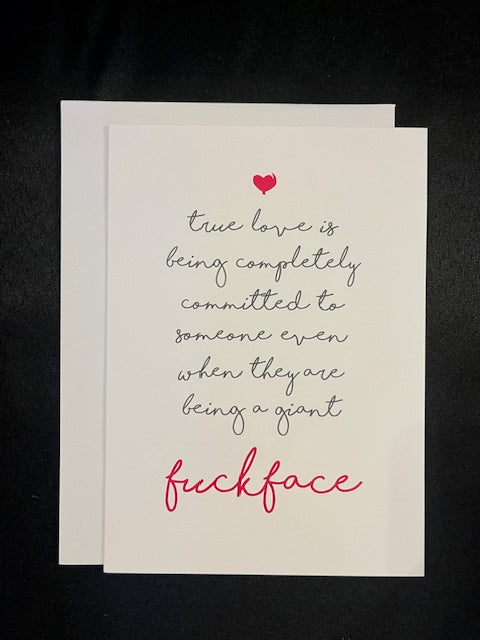 true love is
being completely
committed to
someone even
when they are
being a giant
fuckface